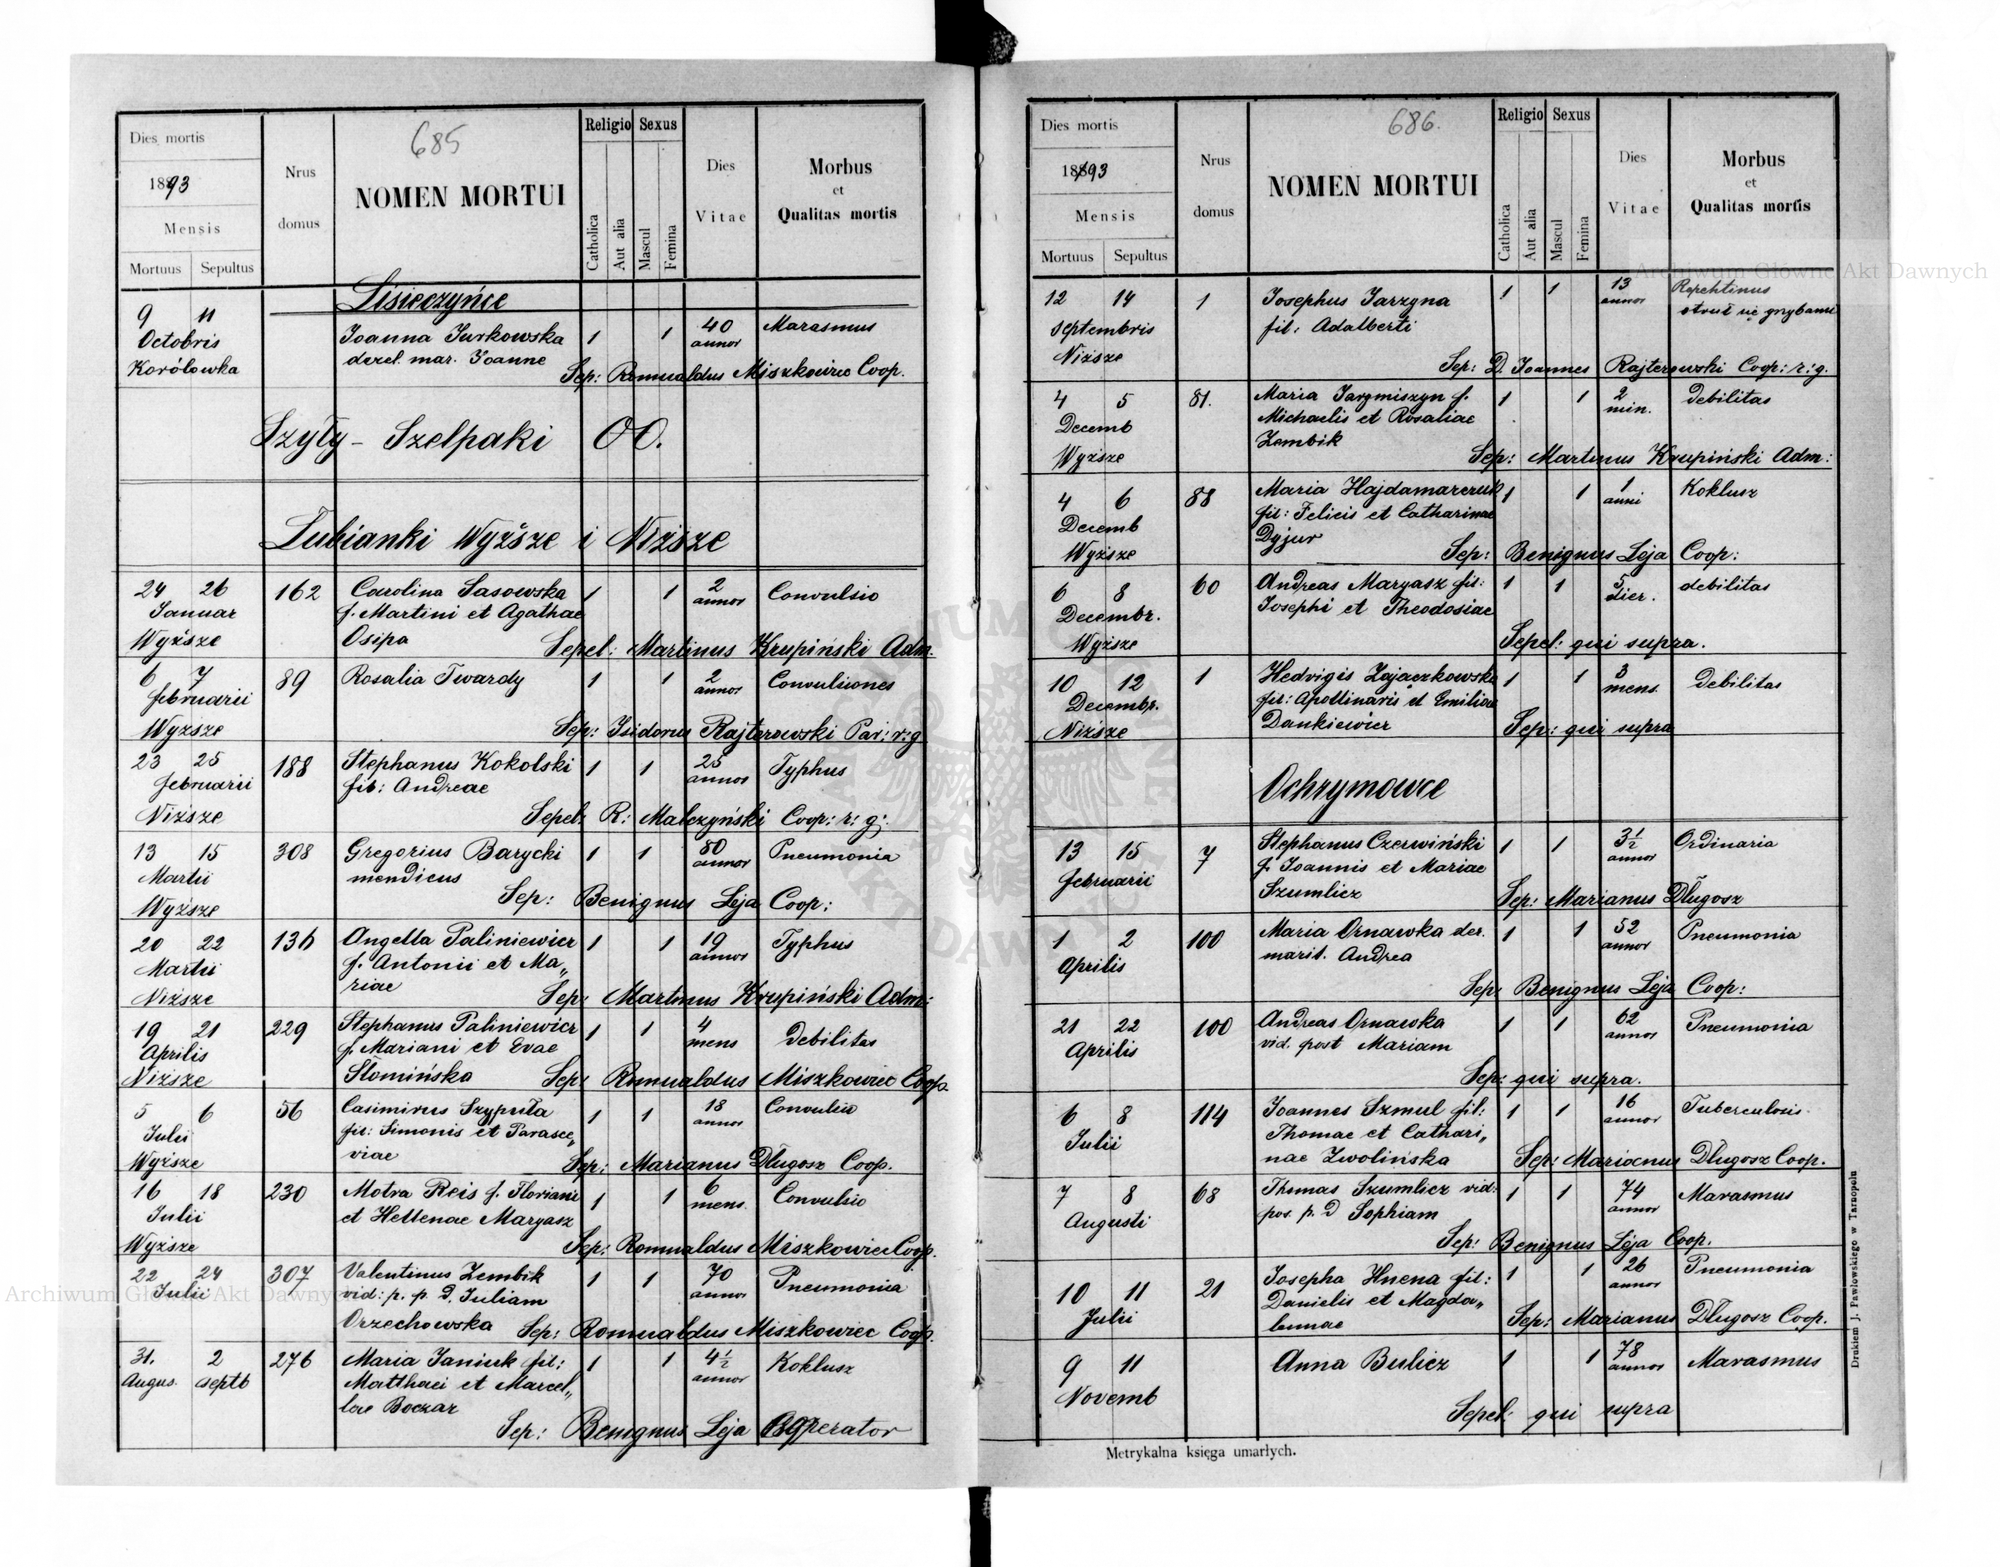 685
Dies mortis
1893
Mensis
Mortuus Sepultus
Nrus domus
NOMEN MORTUI
Religio Sexus
Catholica Aut alia Mascul Femina
Dies Vitae
Morbus et Qualitas mortis
Lisieczyńce
9 11 Joanna Jurkowska 1 1 40 Marasmus
Octobris derel. mar. Joanne annor
Korólowka Sep: Romualdus Miszkowiec Coop.
Szyły - Szelpaki OO.
Łubianki Wyższe i Niższe
24 26 162 Carolina Sasowska 1 1 2 Convulsio
Januar f. Martini et Agathae annor
Wyższe Osipa Sepel: Martinus Krupiński Adm.
6 7 89 Rosalia Twardy 1 1 2 Convulsiones
februarii annor
Wyższe Sep: Isidorus Rajterowski Par: r: g
23 25 188 Stephanus Kokolski 1 1 25 Typhus
februarii fil: Andreae annor
Niższe Sepel: R: Malczyński Coop: r: g:
13 15 308 Gregorius Barycki 1 1 80 Pneumonia
Martii mendicus annor
Wyższe Sep: Benignus Leja Coop:
20 22 136 Angella Paliniewicz 1 1 19 Typhus
Martii f. Antonii et Ma„ annor
Niższe riae Sep: Martinus Krupiński Adm:
19 21 229 Stephanus Paliniewicz 1 1 4 Debilitas
Aprilis f. Mariani et Evae mens
Niższe Słomińska Sep: Romualdus Miszkowiec Coop.
5 6 56 Casimirus Szypuła 1 1 18 Convulsio
Julii fil: Simonis et Parasce„ annor
Wyższe viae Sep: Marianus Długosz Coop.
16 18 230 Motra Reis f. Floriani 1 1 6 Convulsio
Julii et Hellenae Maryasz mens.
Wyższe Sep: Romualdus Miszkowiec Coop.
22 24 307 Valentinus Zembik 1 1 70 Pneumonia
Julii vid: p. p. D. Juliam annor
Orzechowska Sep: Romualdus Miszkowiec Coop.
31. 2 276 Maria Janiuk fil: 1 1 4½ Koklusz
Augus. septb Matthaei et Marcel„ annor
lae Boczar
Sep: Benignus Leja Cooperator
686.
Dies mortis
1893
Mensis
Mortuus Sepultus
Nrus domus
NOMEN MORTUI
Religio Sexus
Catholica Aut alia Mascul Femina
Dies Vitae
Morbus et Qualitas mortis
12 14 1 Josephus Jarzyna 1 1 13 Repehtinus
septembris fil: Adalberti annor struł się grybami
Niższe Sep: D. Joannes Rajterowski Coop: r: g.
4 5 81. Maria Jarzmiszyn f. 1 1 2 Debilitas
Decemb Michaelis et Rosaliae min.
Wyższe Zembik Sep: Martinus Krupiński Adm:
4 6 88 Maria Hajdamarczuk 1 1 1 Koklusz
Decemb fil: Felicis et Catharinae anni
Wyższe Dyjur Sep: Benignus Leja Coop:
6 8 60 Andreas Maryasz fil: 1 1 3 debilitas
Decembr. Josephi et Theodosiae dier.
Wyższe Sepel: qui supra.
10 12 1 Hedvigis Zajączkowska 1 1 3 Debilitas
Decembr. fil: Apollinaris et Emiliae mens.
Niższe Dankiewicz Sep: qui supra
Ochrymowce
13 15 7 Stephanus Czerwiński 1 1 3½ Ordinaria
februarii f. Joannis et Mariae annor
Szumlicz Sep: Marianus Długosz
1 2 100 Maria Ornawka der. 1 1 52 Pneumonia
Aprilis marit. Andrea annor
Sep: Benignus Leja Coop:
21 22 100 Andreas Ornawka 1 1 62 Pneumonia
Aprilis vid. post Mariam annor
Sep: qui supra.
6 8 114 Joannes Szmul fil: 1 1 16 Tuberculosis
Julii Thomae et Cathari„ annor
nae Zwolińska Sep: Marianus Długosz Coop.
7 8 68 Thomas Szumlicz vid: 1 1 74 Marasmus
Augusti pos. p. D Sophiam annor
Sep: Benignus Leja Coop.
10 11 21 Josepha Hnena fil: 1 1 26 Pneumonia
Julii Danielis et Magda„ annor
lennae Sep: Marianus Długosz Coop.
9 11 Anna Bulicz 1 1 78 Marasmus
Novemb annor
Sepel: qui supra
Metrykalna księga umarłych.
Drukiem J. Pawłowskiego w Tarnopolu
Archiwum Główne Akt Dawnych
Archiwum Główne Akt Dawnych